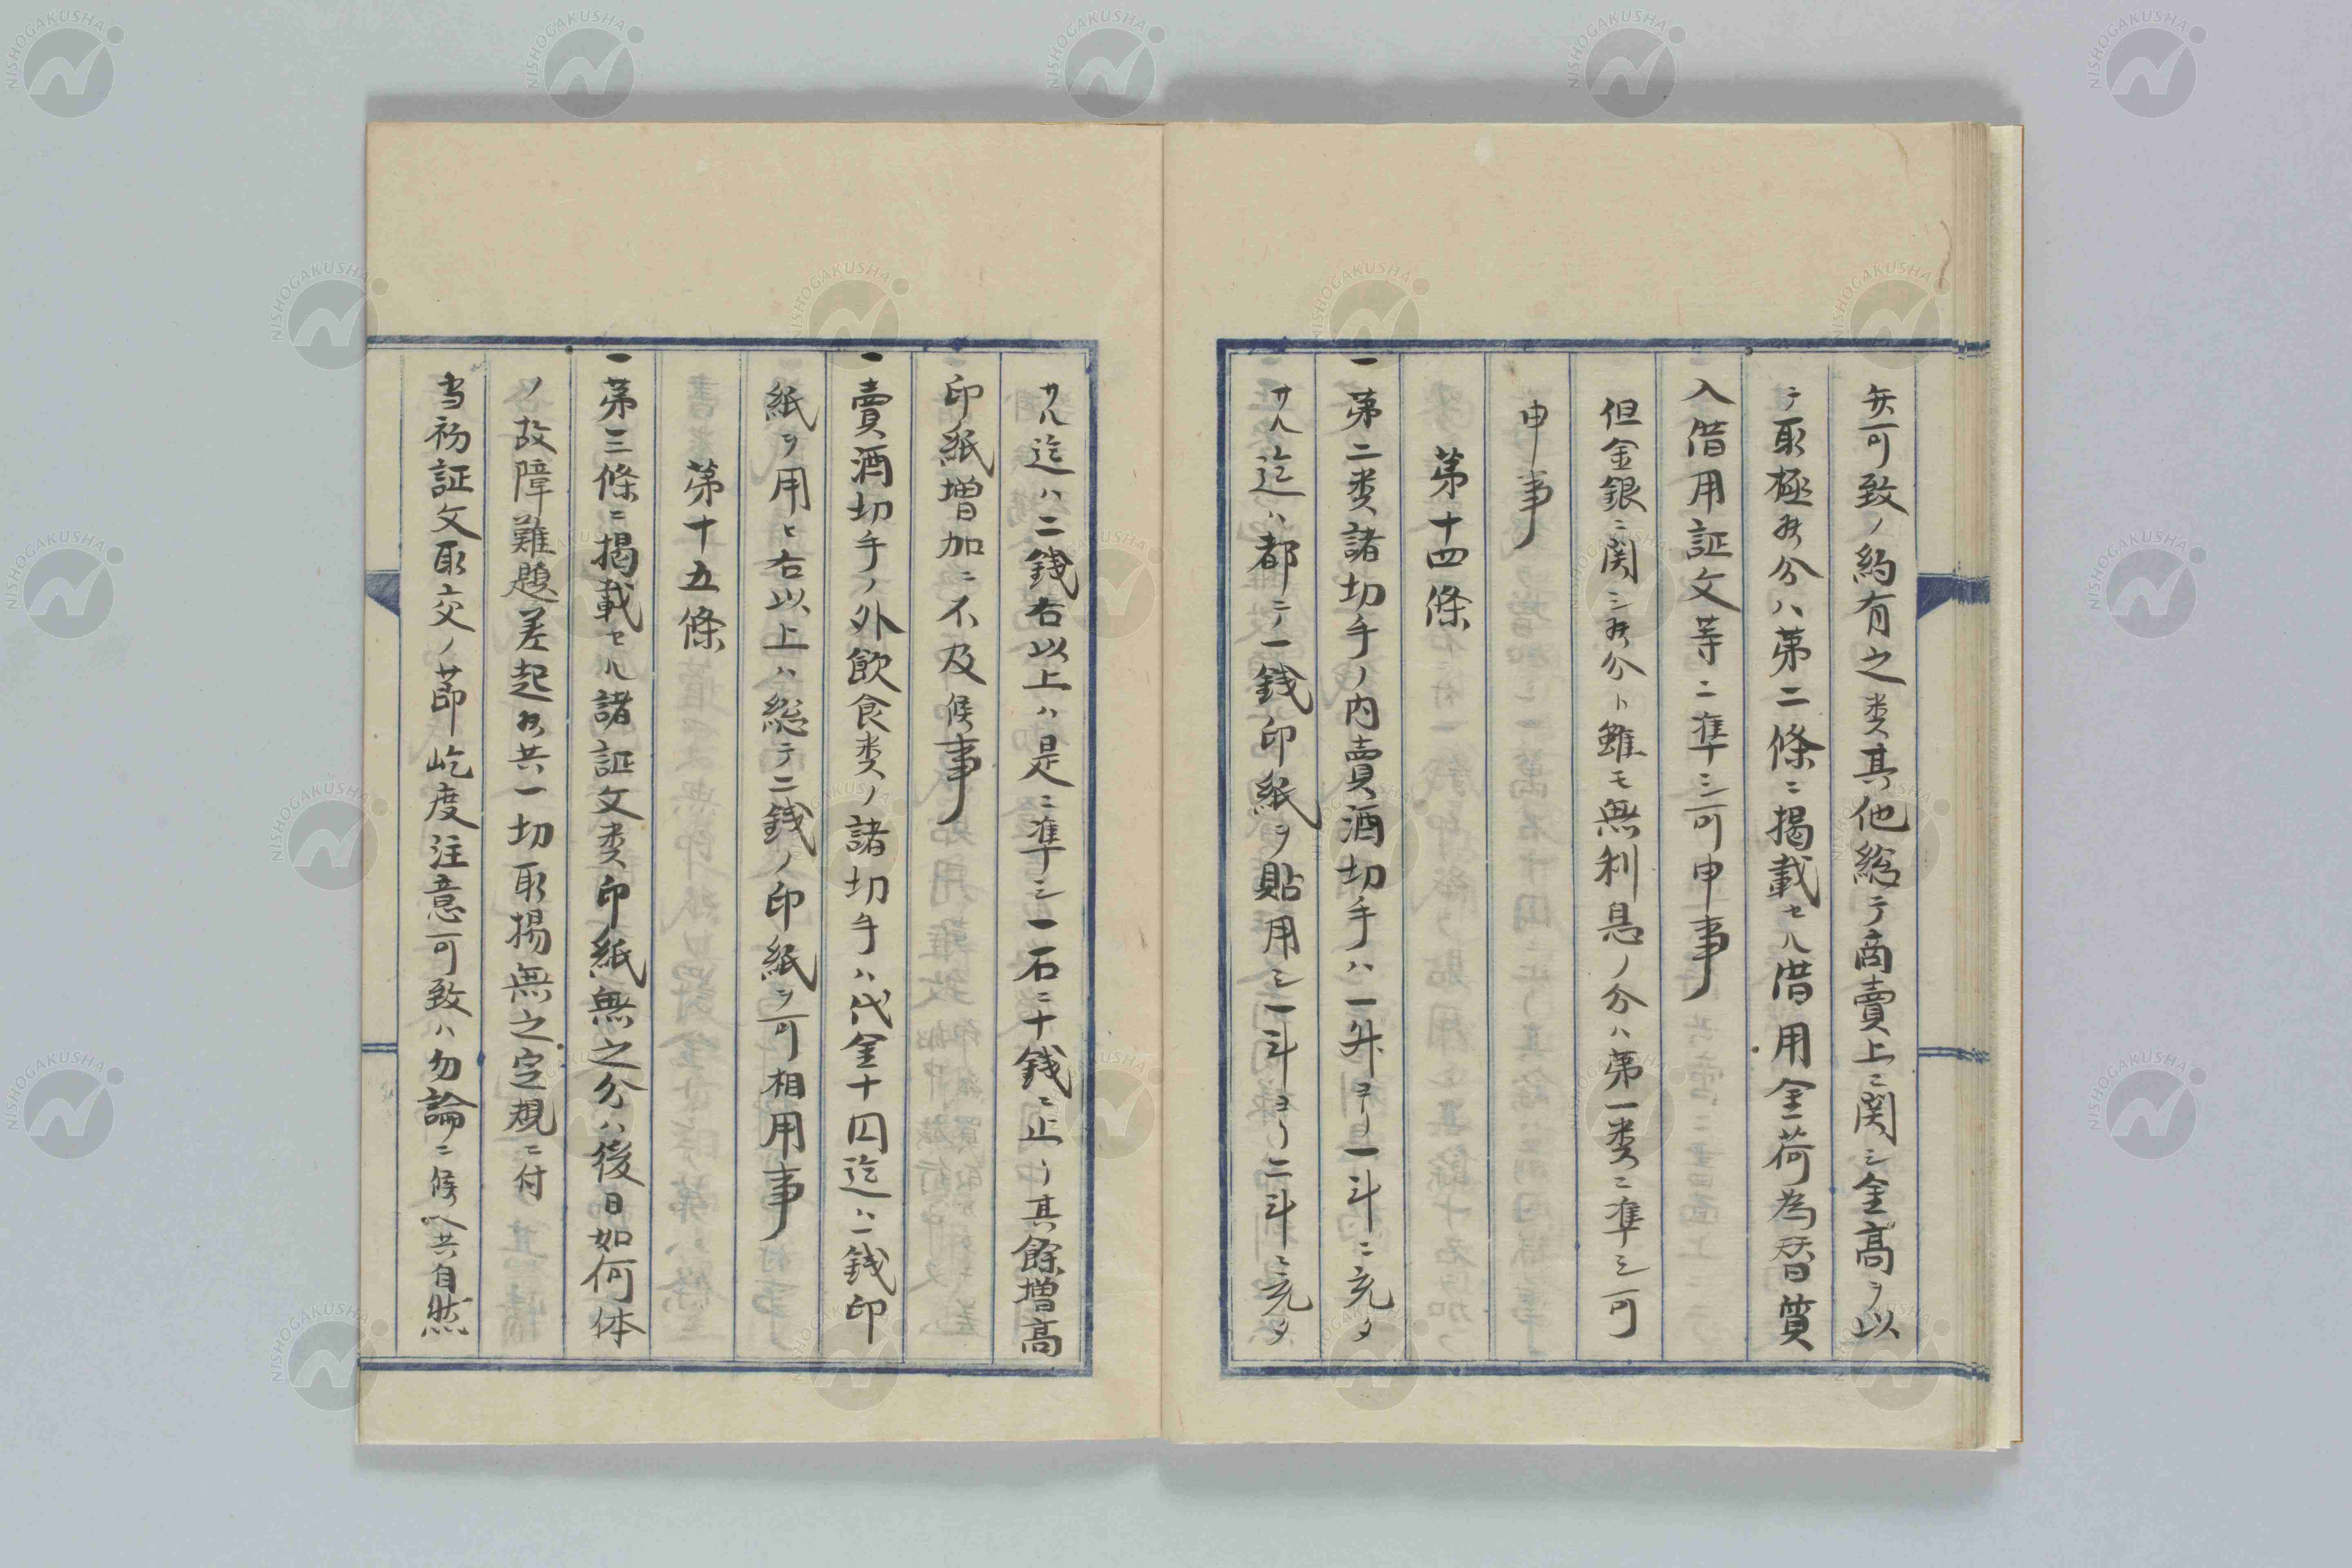 弁可致ノ約有之类其他総テ商賣上ニ関シ金高ヲ以
テ取極候分ハ第二條ニ掲載セル借用金荷為替質
入借用証文等ニ準シ可申事
但金銀ニ関シ候分ト雖モ無利息ノ分ハ第一类ニ準シ可
申事
第十四條
一第二类諸切手ノ内賣酒切手ハ一升ヨリ一斗ニ充タ
サル迄ハ都テ一錢印紙ヲ貼用シ一斗ヨリ二斗ニ充タ
サル迄ハ二錢右以上ハ是ニ準シ一石ニ十錢ニ止リ其餘増高
印紙増加ニ不及候事
一賣酒切手ノ外飲食类ノ諸切手ハ代金十円迄ハ一錢印
紙ヲ用ヒ右以上ハ総テ二錢ノ印紙ヲ可相用事
第十五條
一第三條ニ掲載セル諸証文类印紙無之分ハ後日如何体
ノ故障難題差起候共一切取揚無之定規ニ付
当初証文取交ノ節屹度注意可致ハ勿論ニ候ヘ共自然
NISHOGAKUSHA